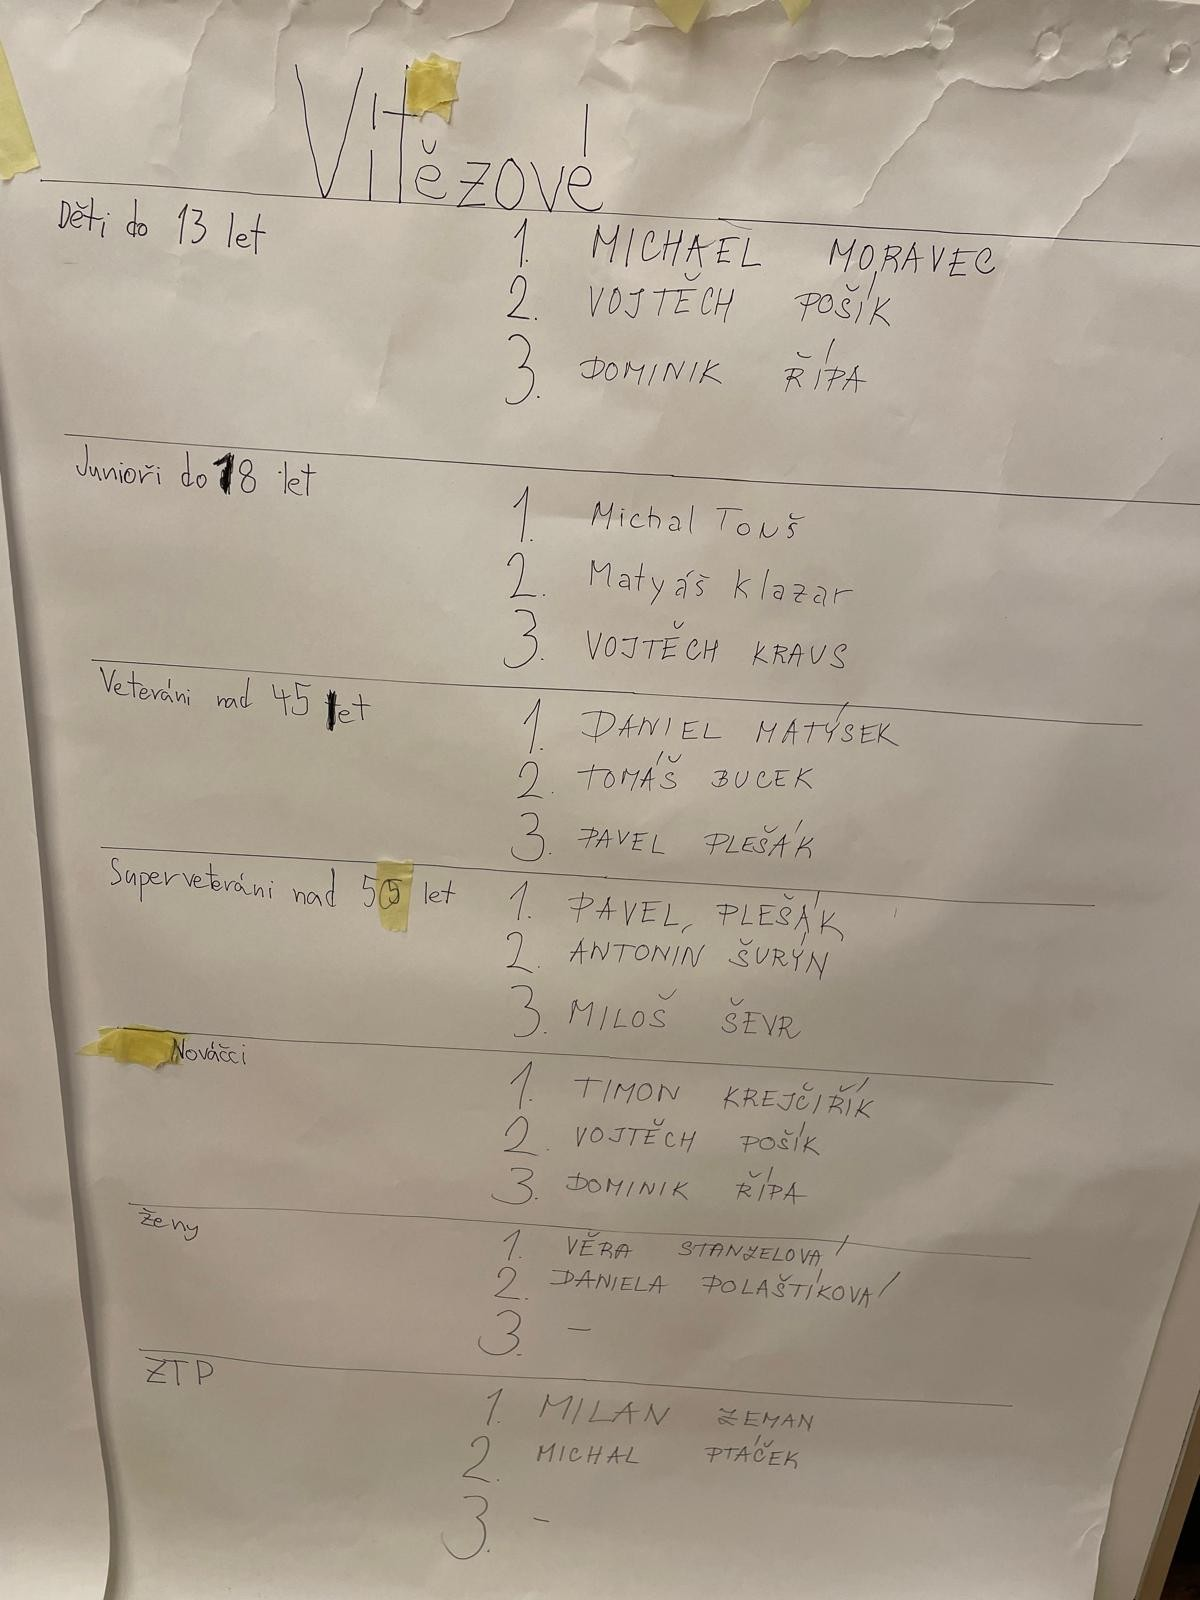 Vítězové
Děti do 13 let
1. MICHAEL MORAVEC
2. VOJTĚCH POŠÍK
3. DOMINIK ŘÍPA
Junioři do 18 let
1. Michal Tonš
2. Matyáš Klazar
3. VOJTĚCH KRAUS
Veteráni nad 45 let
1. DANIEL MATÝSEK
2. TOMÁŠ BUCEK
3. PAVEL PLEŠÁK
Superveteráni nad 55 let
1. PAVEL PLEŠÁK
2. ANTONÍN ŠURÝN
3. MILOŠ ŠEVR
Nováčci
1. TIMON KREJČIŘÍK
2. VOJTĚCH POŠÍK
3. DOMINIK ŘÍPA
Ženy
1. VĚRA STANZELOVÁ
2. DANIELA POLAŠTÍKOVÁ
3. -
ZTP
1. MILAN ZEMAN
2. MICHAL PTÁČEK
3. -